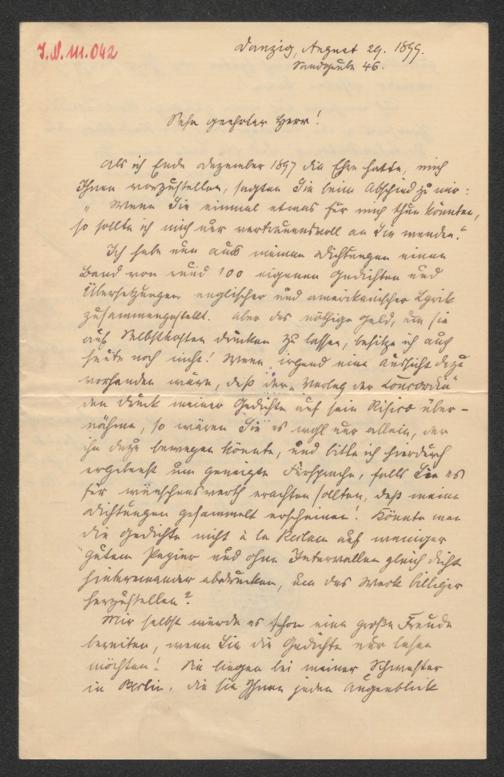 I.N. 111.042
Danzig, August 29. 1899.
Sandgrube 46.
Sehr geehrter Herr!
Als ich Ende Dezember 1897 die Ehre hatte, mich
Ihnen vorzustellen, sagten Sie beim Abschied zu mir:
„Wenn Sie einmal etwas für mich thun könnten,
so sollte ich mich nur vertrauensvoll an Sie wenden."
Ich habe nun aus meinen Dichtungen einen
Band von rund 100 eigenen Gedichten und
Übersetzungen englischer und amerikanischer Lyrik
zusammengestellt. Aber das nöthige Geld, um sie
auf Selbstkosten drucken zu lassen, besitze ich auch
heute noch nicht! Wenn irgend eine Aussicht dazu
vorhanden wäre, daß der Verlag der Concordia
den Druck meiner Gedichte auf sein Risico über-
nähme, so wären Sie es wohl nur allein, der
ihn dazu bewegen könnte, und bitte ich hierdurch
ergebenst um geneigte Fürsprache, falls Sie es
für wünschenswerth erachten sollten, daß meine
Dichtungen gesammelt erscheinen! Könnte man
die Gedichte nicht à la Reclam auf weniger
gutem Papier und ohne Intervallen gleich dicht
hintereinander abdrucken, um das Werk billiger
herzustellen?
Mir selbst würde es schon eine große Freude
bereiten, wenn Sie die Gedichte nur lesen
möchten! Sie liegen bei meiner Schwester
in Berlin, die sie Ihnen jeden Augenblick